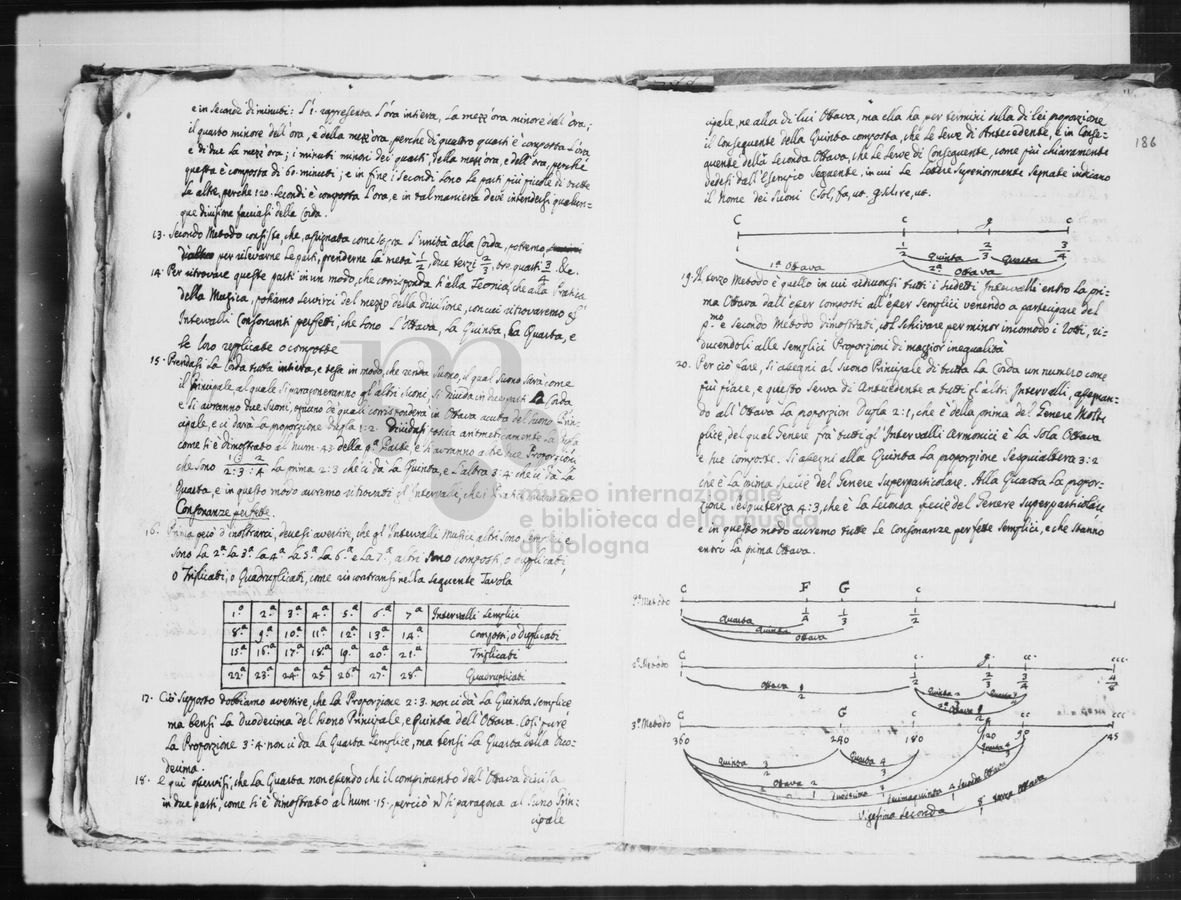 e in Seconde di minuti: L'1. rappresenta L'ora intiera, La mezz'ora minore dell'ora;
il quarto minore dell'ora, e della mezz'ora, perche di quattro quarti è composta L'ora
e di due La mezz'ora; i minuti minori dei quarti, della mezz'ora, e dell'ora, perche
questa è composta di 60. minuti; e in fine i Secondi sono Le parti più piccole di tutte
Le altre, perche 120. Secondi è composta L'ora, e in tal maniera deve intendersi qualun-
que divisione facciasi della Corda.
13. Secondo Metodo consiste, che, assegnata come sopra L'unità alla Corda, potremo
per rilevarne Le parti, prenderne La metà 1/2, due terzi 2/3, tre quarti 3/4 &c.
14. Per ritrovare queste parti in un modo, che corrisponda sì alla Teorica, che alla Pratica
della Musica, potiamo servirci del mezzo della divisione, con cui ritrovaremo gl'
Intervalli Consonanti perfetti, che sono L'Ottava, La Quinta, La Quarta, e
le loro replicate o composte
15. Prendasi La Corda tutta intiera, e tesa in modo, che renda Suono, il qual Suono sarà come
il Principale, al quale si proporzioneranno gl'altri suoni, si divida in due parti La Corda
e si avranno due Suoni, ognuno de quali corrisponderà in Ottava acuta del Suono Prin-
cipale, e ci darà La proporzione dupla 1:2. Dividasi poscia aritmeticamente La Dupla
come si è dimostrato al num. 43. della pª. Parte, e si avranno due Proporzioni
che sono 2:3:4 La prima 2:3 che ci dà La Quinta, e L'altra 3:4 che ci dà La
Quarta, e in questo modo avremo ritrovati gl'Intervalli, che
Consonanze perfette.
16. Prima però d'inoltrarci, devesi avertire, che gl'Intervalli Musici altri sono semplici e
sono La 2ª. La 3ª. La 4ª. La 5ª. La 6ª. e La 7ª., altri sono composti, o duplicati,
o Triplicati, o Quadruplicati, come riscontransi nella seguente Tavola
1º. 2ª. 3ª. 4ª. 5ª. 6ª. 7ª. Intervalli semplici
8ª. 9ª. 10ª. 11ª. 12ª. 13ª. 14ª. Composti, o duplicati
15ª. 16ª. 17ª. 18ª. 19ª. 20ª. 21ª. Triplicati
22ª. 23ª. 24ª. 25ª. 26ª. 27ª. 28ª. Quadruplicati
17. Ciò supposto dobbiamo avertire, che La Proporzione 2:3. non ci dà La Quinta semplice
ma bensì La Duodecima del suono Principale, e Quinta dell'Ottava. Così pure
La Proporzione 3:4. non ci dà La Quarta semplice, ma bensì La Quarta della Duo-
decima.
18. E qui osservisi, che La Quarta non essendo che il compimento dell'Ottava divisa
in due parti, come si è dimostrato al num. 15., perciò si paragona al Suono Prin-
cipale
186
cipale, ne alla di lui Ottava, ma ella ha per termini della di lei proporzione
il Conseguente della Quinta composta, che le serve di Antecedente, e in Conse-
quente della seconda Ottava, che le serve di Conseguente, come più chiaramente
vedesi dall'Esempio Seguente, in cui Le Lettere superiormente segnate indicano
il Nome dei Suoni C sol, fa, ut. g sol re, ut.
C c g c
1 1/2 2/3 3/4
1ª Ottava Quinta Quarta
2ª Ottava
19. Il terzo Metodo è quello in cui riduconsi tutti i sudetti Intervalli entro La pri-
ma Ottava dall'esser composti all'esser semplici venendo a partecipare del
pmo. e secondo Metodo dimostrati, col schivare per minor incomodo i Rotti, ri-
ducendoli alle semplici Proporzioni di maggior inequalità
20. Per ciò fare, si assegni al Suono Principale di tutta La Corda un numero come
più piace, e questo serva di Antecedente a tutti gl'altri Intervalli, assegnan-
do all'Ottava La proporzion Dupla 2:1, che è della prima del Genere Molti
plice, del qual Genere frà tutti gl'Intervalli armonici è La sola Ottava
e sue composte. Si assegni alla Quinta La proporzione Sesquialtera 3:2
che è La prima specie del Genere Superparticolare. Alla Quarta La propor-
zione Sesquiterza 4:3, che è La seconda specie del Genere superparticolare
e in questo modo avremo tutte Le Consonanze perfette semplici, e che stanno
entro La prima Ottava.
1º. Metodo C F G c
1/4 1/3 1/2
Quarta
Quinta
Ottava
2º. Metodo C c g cc ccc
1/2 2/3 3/4 4/8
Ottava 1/2 Quinta 2/3 Quarta
2ª Ottava
3º. Metodo C G c g cc ccc
360 240 180 120 90 45
Quinta 3/2 Quarta 4/3 Quarta 4/3
Ottava 2/1 Duodecima 3/1 Quintadecima 4/1 Seconda Ottava
Vigesima seconda 8/1 terza Ottava
museo internazionale
e biblioteca della musica
di bologna